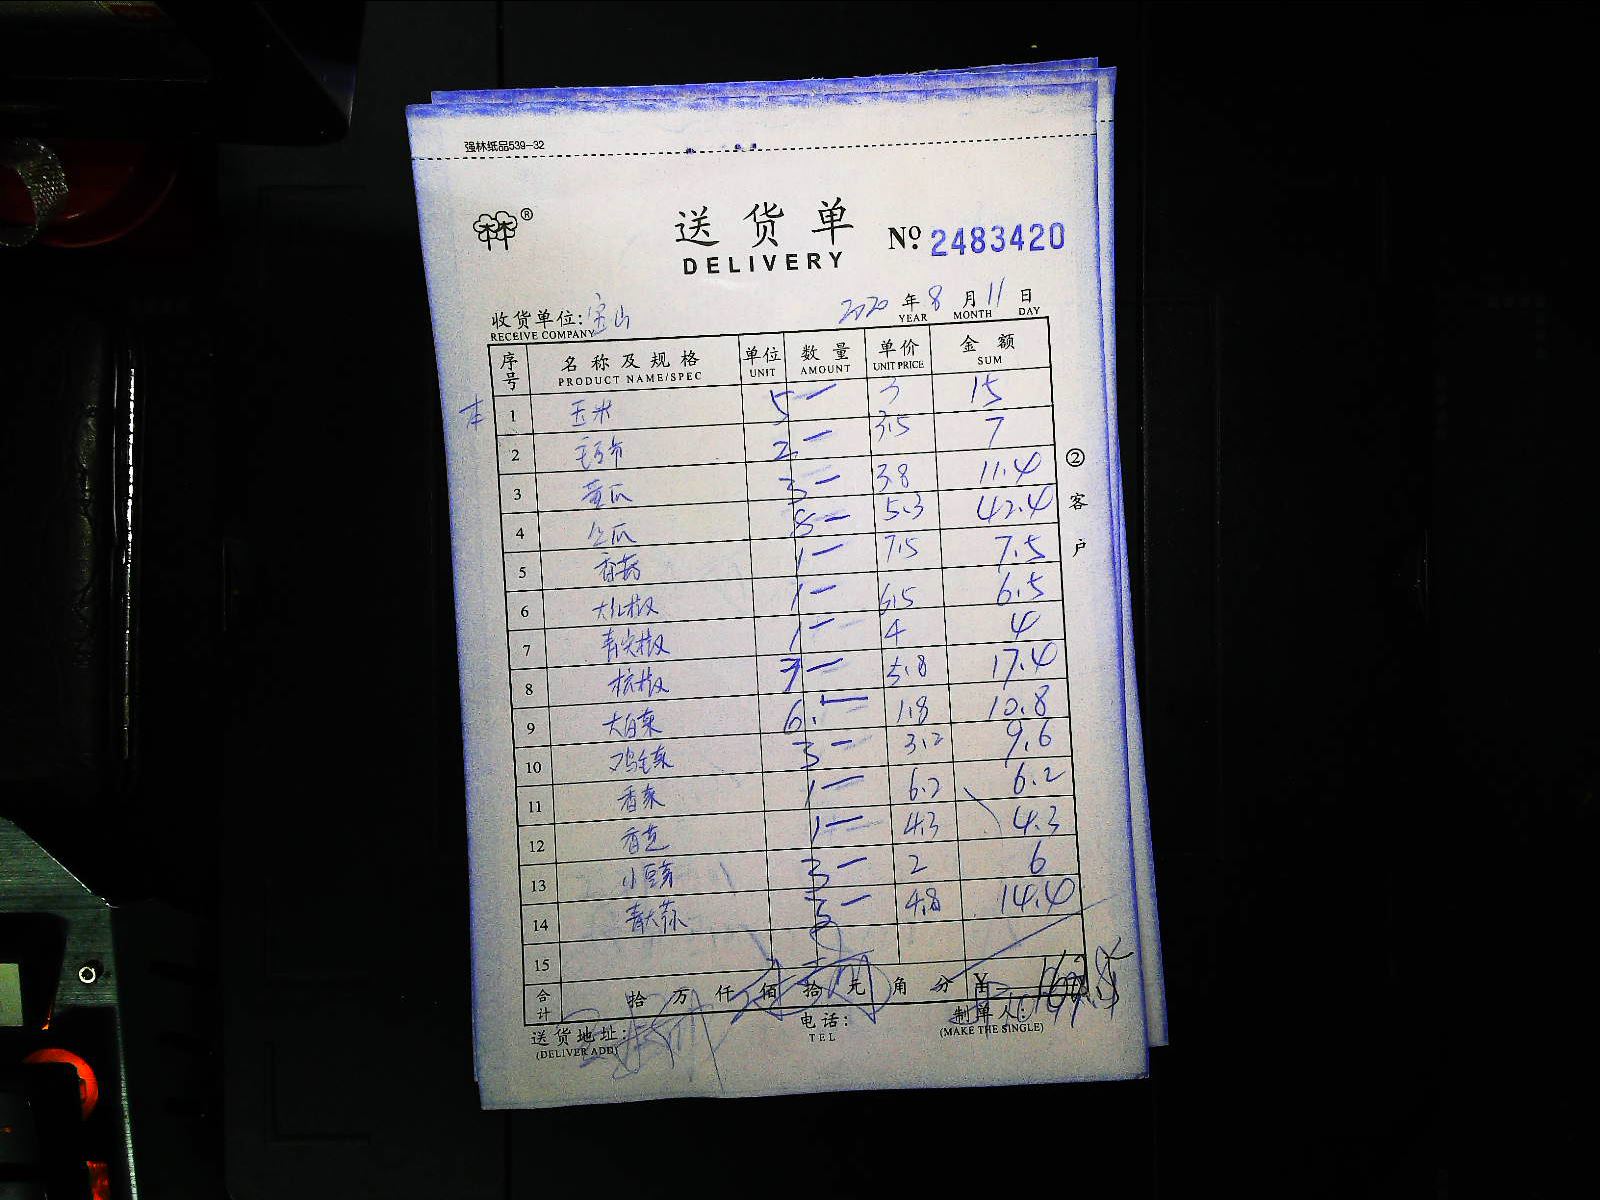 强林纸品539-32
®
送货单
DELIVERY
No. 2483420
收货单位: 宝山
RECEIVE COMPANY
2020 年 8 月 11 日
YEAR MONTH DAY
序号 名称及规格 单位 数量 单价 金额
PRODUCT NAME/SPEC UNIT AMOUNT UNIT PRICE SUM
1 玉米 5 — 3 15
2 2 — 3.5 7
3 黄瓜 3 — 3.8 11.4
4 瓜 8 — 5.3 42.4
5 香菇 1 — 7.5 7.5
6 大红椒 1 — 6.5 6.5
7 青尖椒 1 — 4 4
8 杭椒 3 — 5.8 17.4
9 大白菜 6. — 1.8 10.8
10 鸡毛菜 3 — 3.2 9.6
11 香菜 1 — 6.2 6.2
12 香芹 1 — 4.3 4.3
13 小豆芽 3 — 2 6
14 青大蒜 3 — 4.8 14.4
15
合计 拾 万 仟 佰 拾 元 角 分 ¥
送货地址:
(DELIVER ADD)
电话:
TEL
制单人:
(MAKE THE SINGLE)
②客户